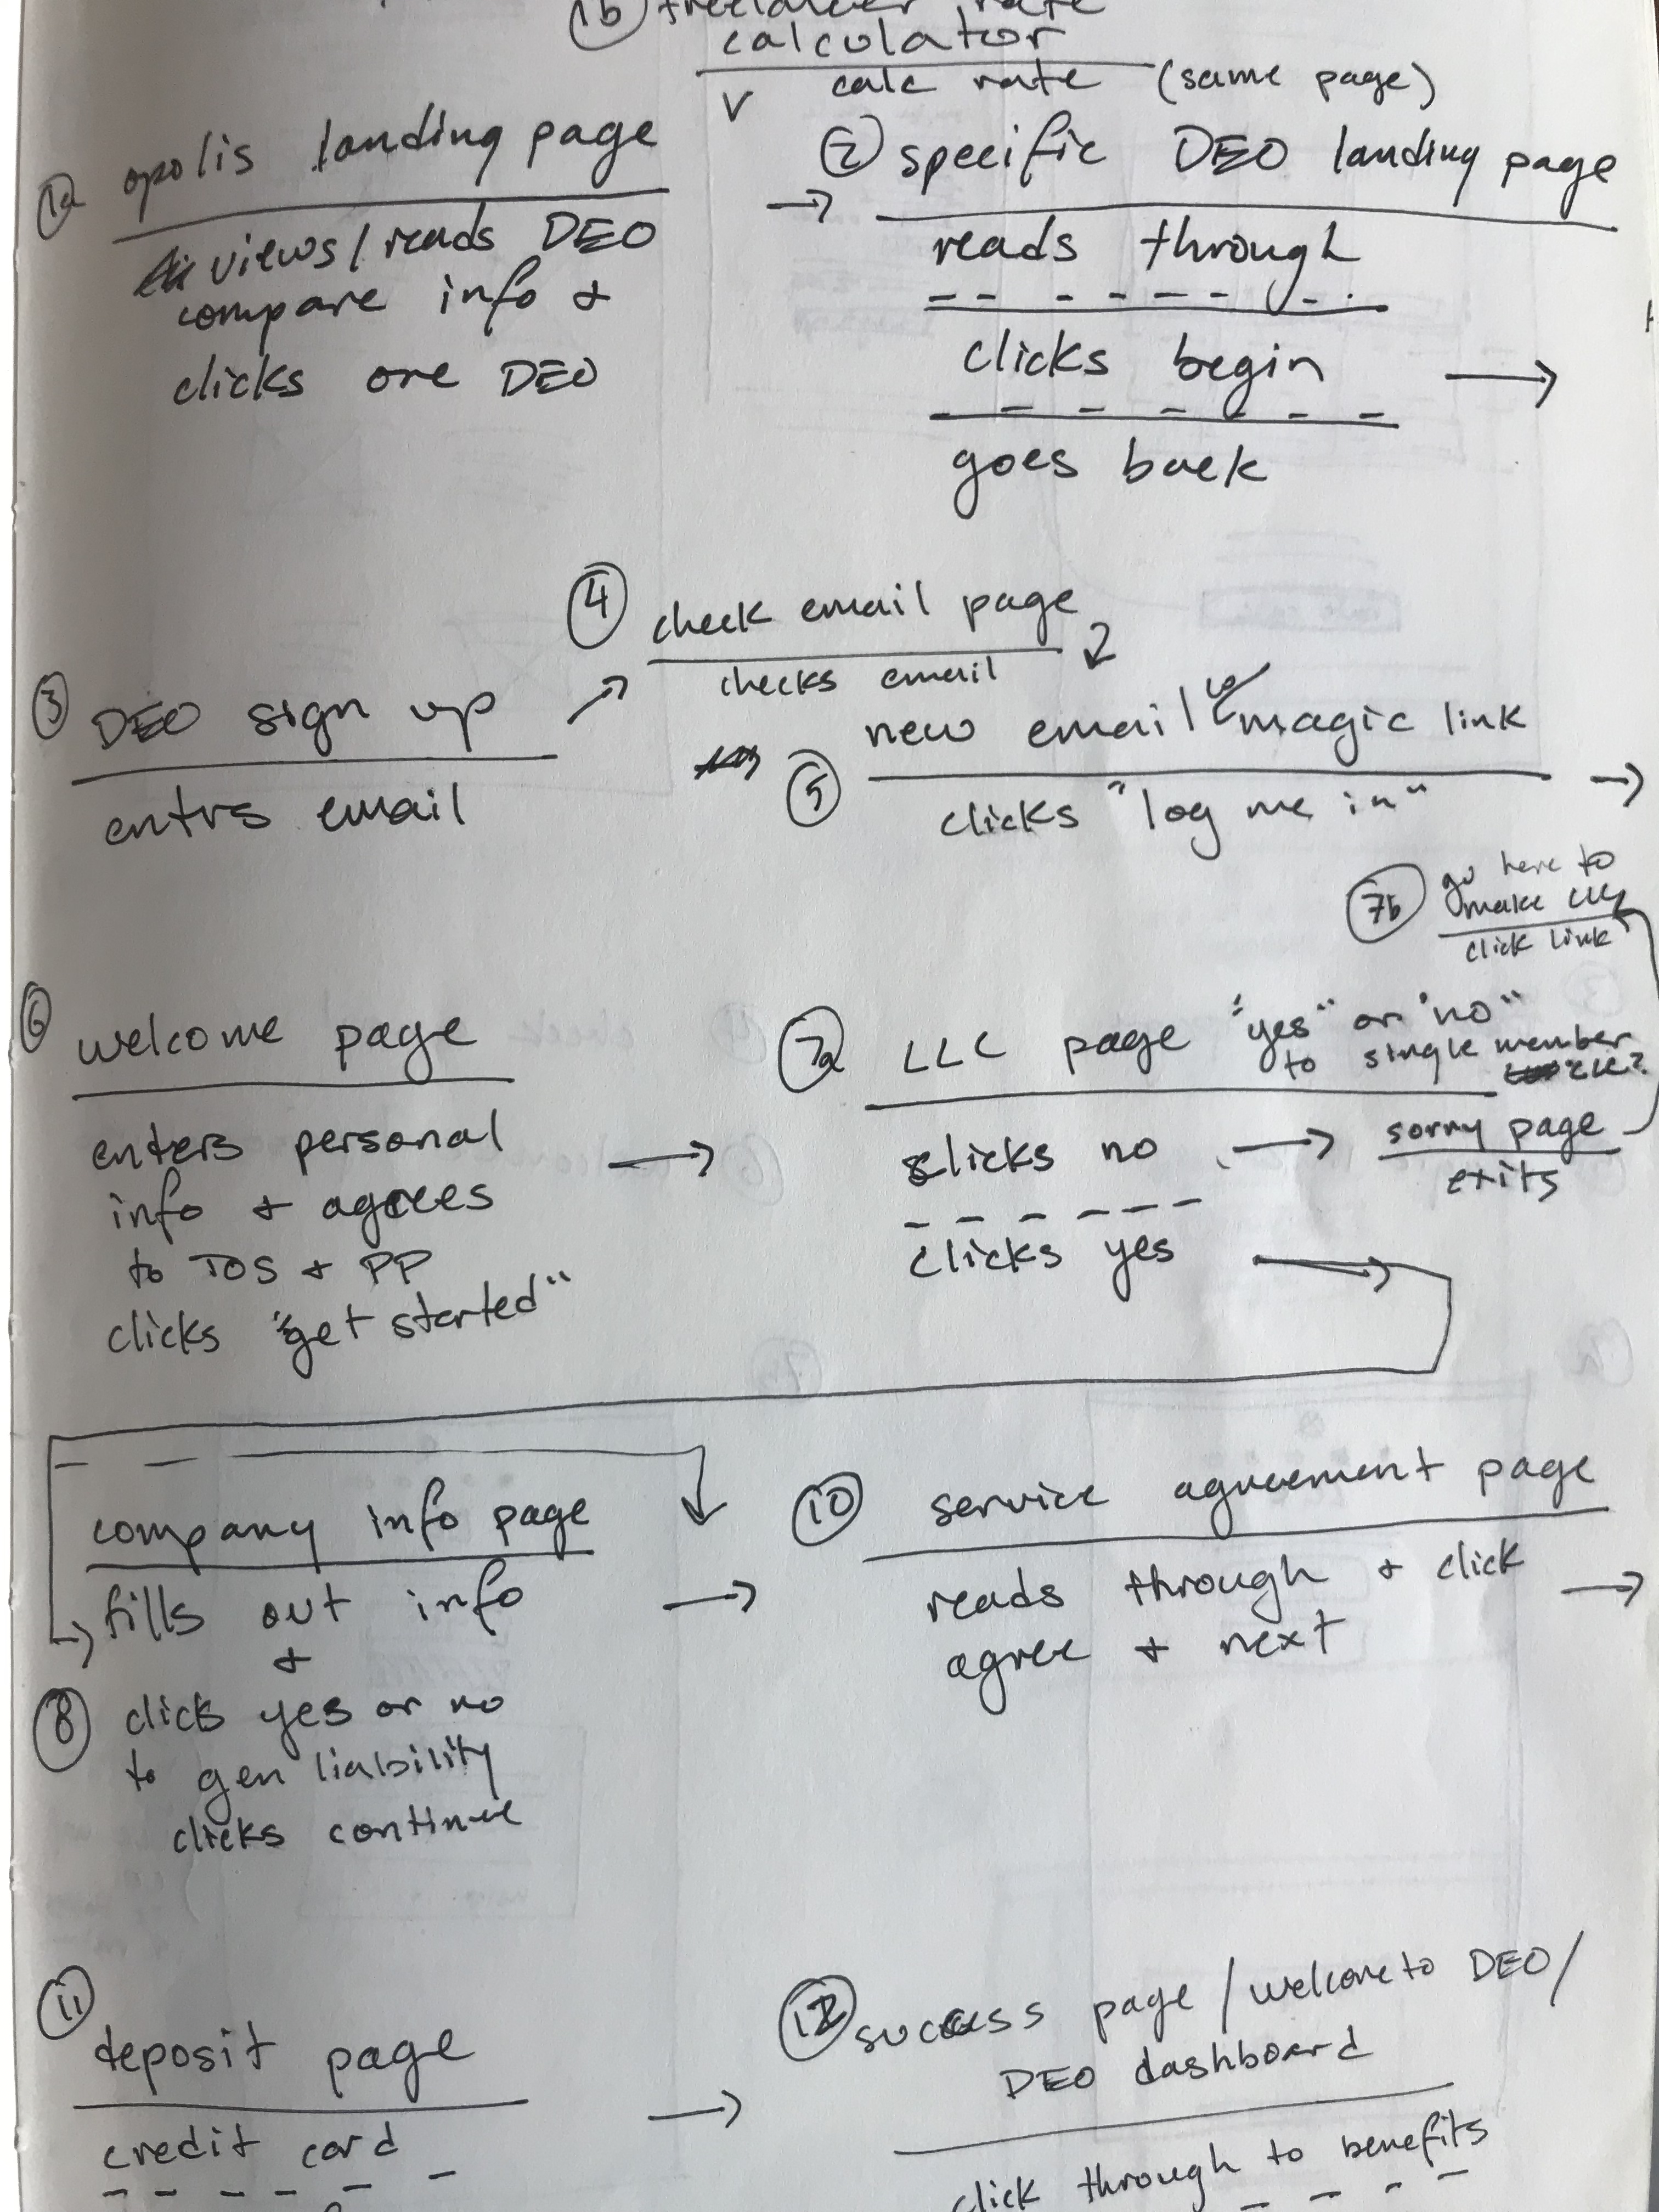 1b freelancer rate
calculator
calc rate (same page)
1a opolis landing page
views/reads DEO
compare info &
clicks one DEO
→
2 specific DEO landing page
reads through
clicks begin →
goes back
3 DEO sign up
entrs email
4 check email page
checks email
5 new email w/ magic link
clicks "log me in" →
6 welcome page
enters personal
info & agrees
to TOS & PP
clicks "get started"
→
7a LLC page "yes" or "no"
to single member
LLC?
clicks no → sorry page
exits
clicks yes →
7b go here to
make LLC
click link
company info page
fills out info
&
8 clicks yes or no
to gen liability
clicks continue
→
10 service agreement page
reads through & click →
agree & next
11 deposit page
credit card
→
12 success page / welcome to DEO /
DEO dashboard
click through to benefits